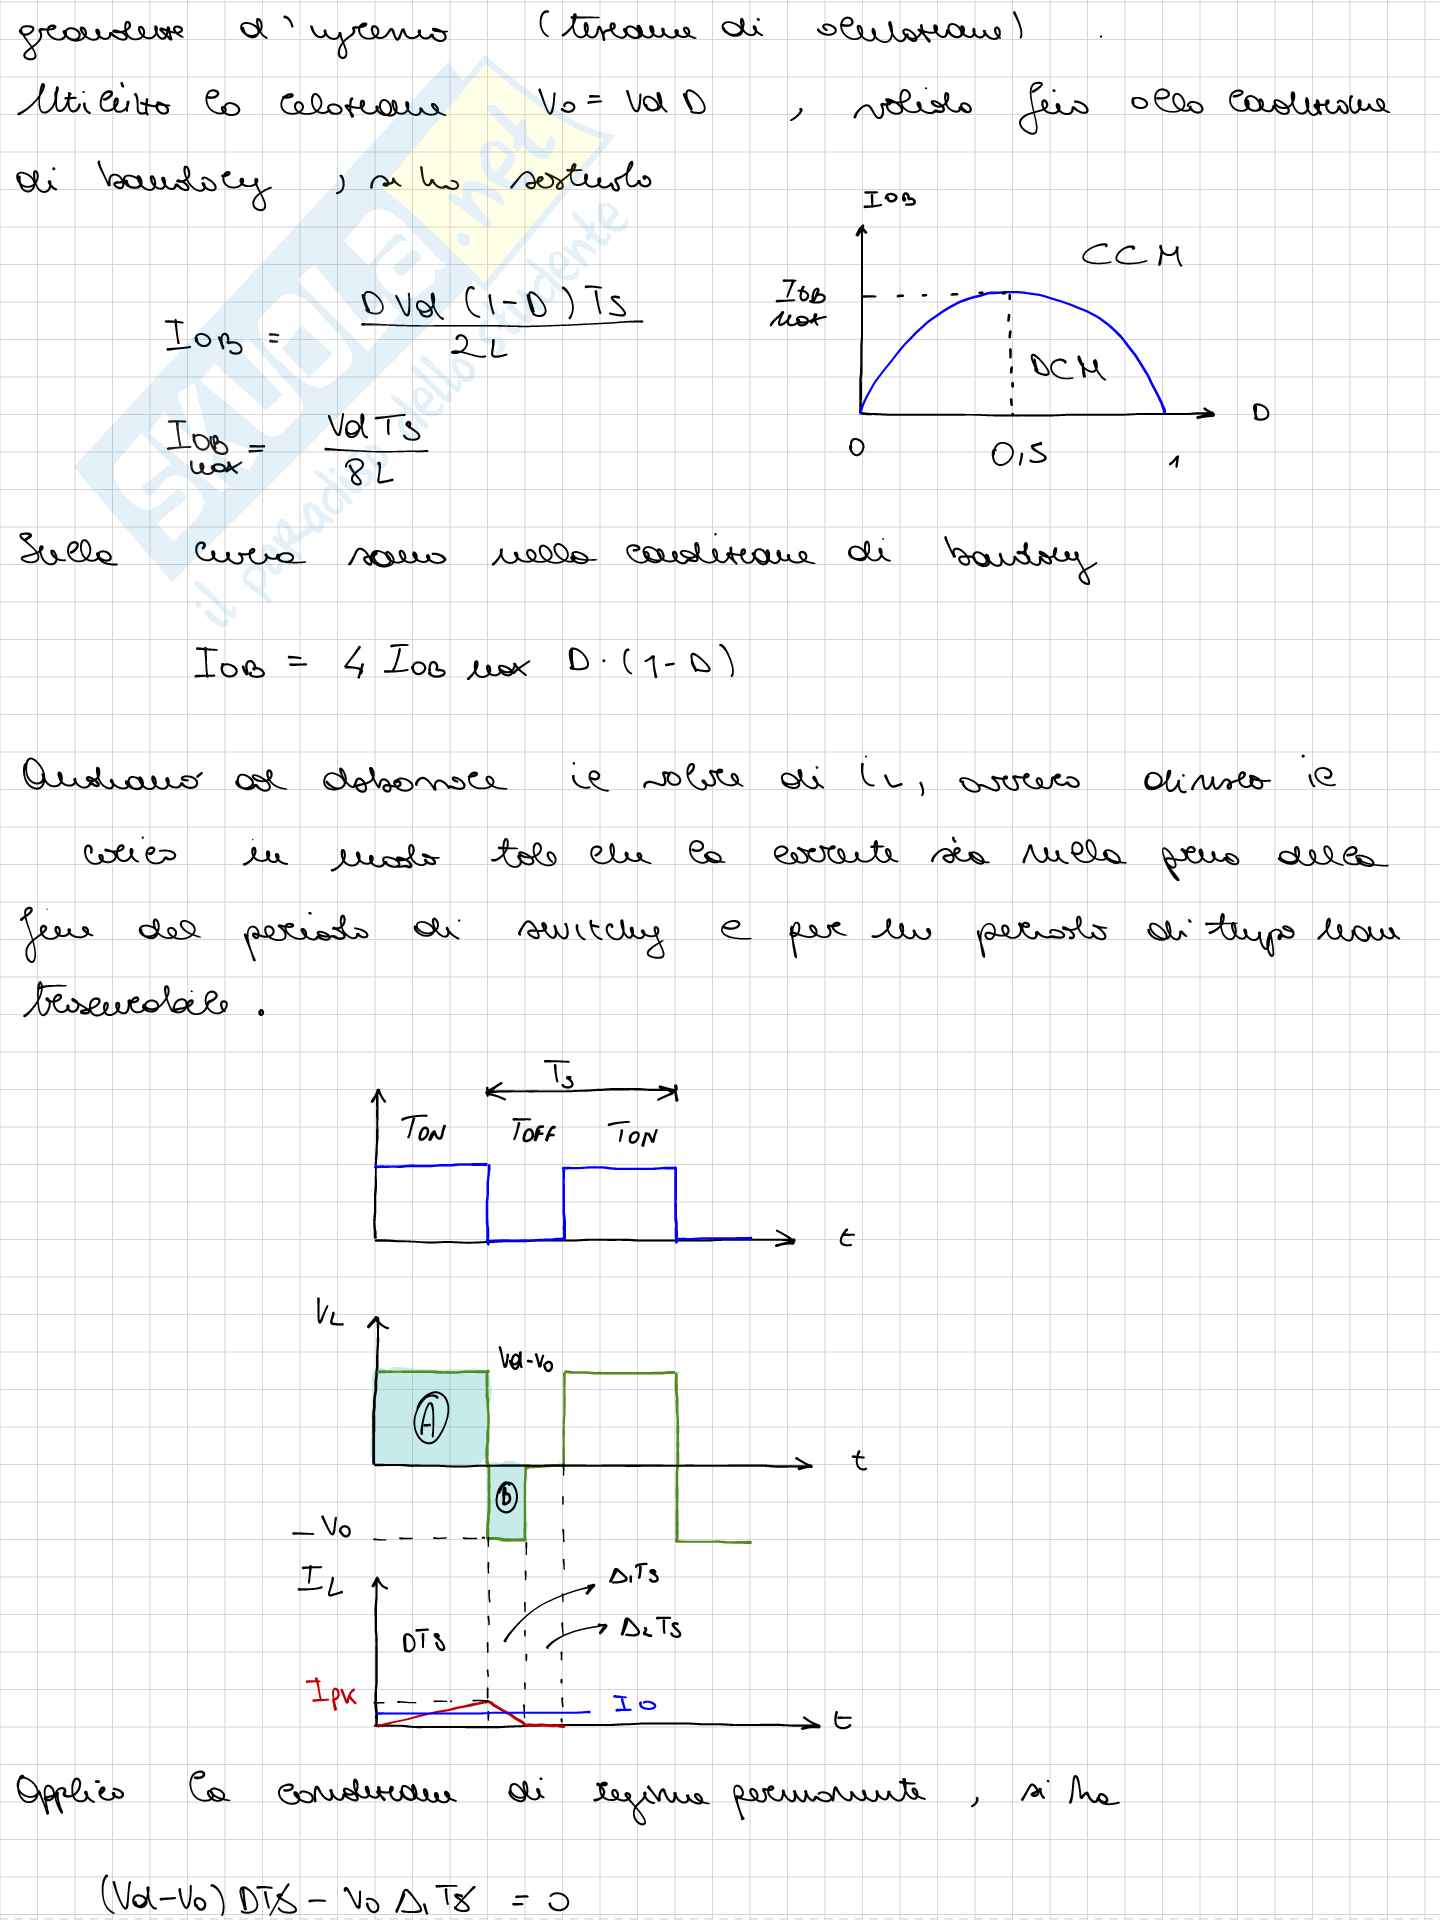 grandezze d'ingresso (tensione di alimentazione).
Utilizzo la relazione Vo = Vd D , valida fino alla condizione
di boundary , si ha sostituendo
IOB
CCM
IOB max
DCM
D
0
0,5
1
IOB = D Vd (1-D) Ts / 2L
IOB max = Vd Ts / 8L
Sulla curva sono nella condizione di boundary
IOB = 4 IOB max D·(1-D)
Andiamo ad abbassare il valore di iL, ovvero diminuisco il
carico in modo tale che la corrente sia nulla prima della
fine del periodo di switching e per un periodo di tempo non
trascurabile.
Ts
TON TOFF TON
t
VL
Vd-Vo
A
t
B
-Vo
IL
Δ1Ts
DTs
Δ2Ts
IPK
IO
t
Applico la condizione di regime permanente , si ha
(Vd-Vo) DTs - Vo Δ1 Ts = 0
SKUOLA.net
il paradiso dello studente